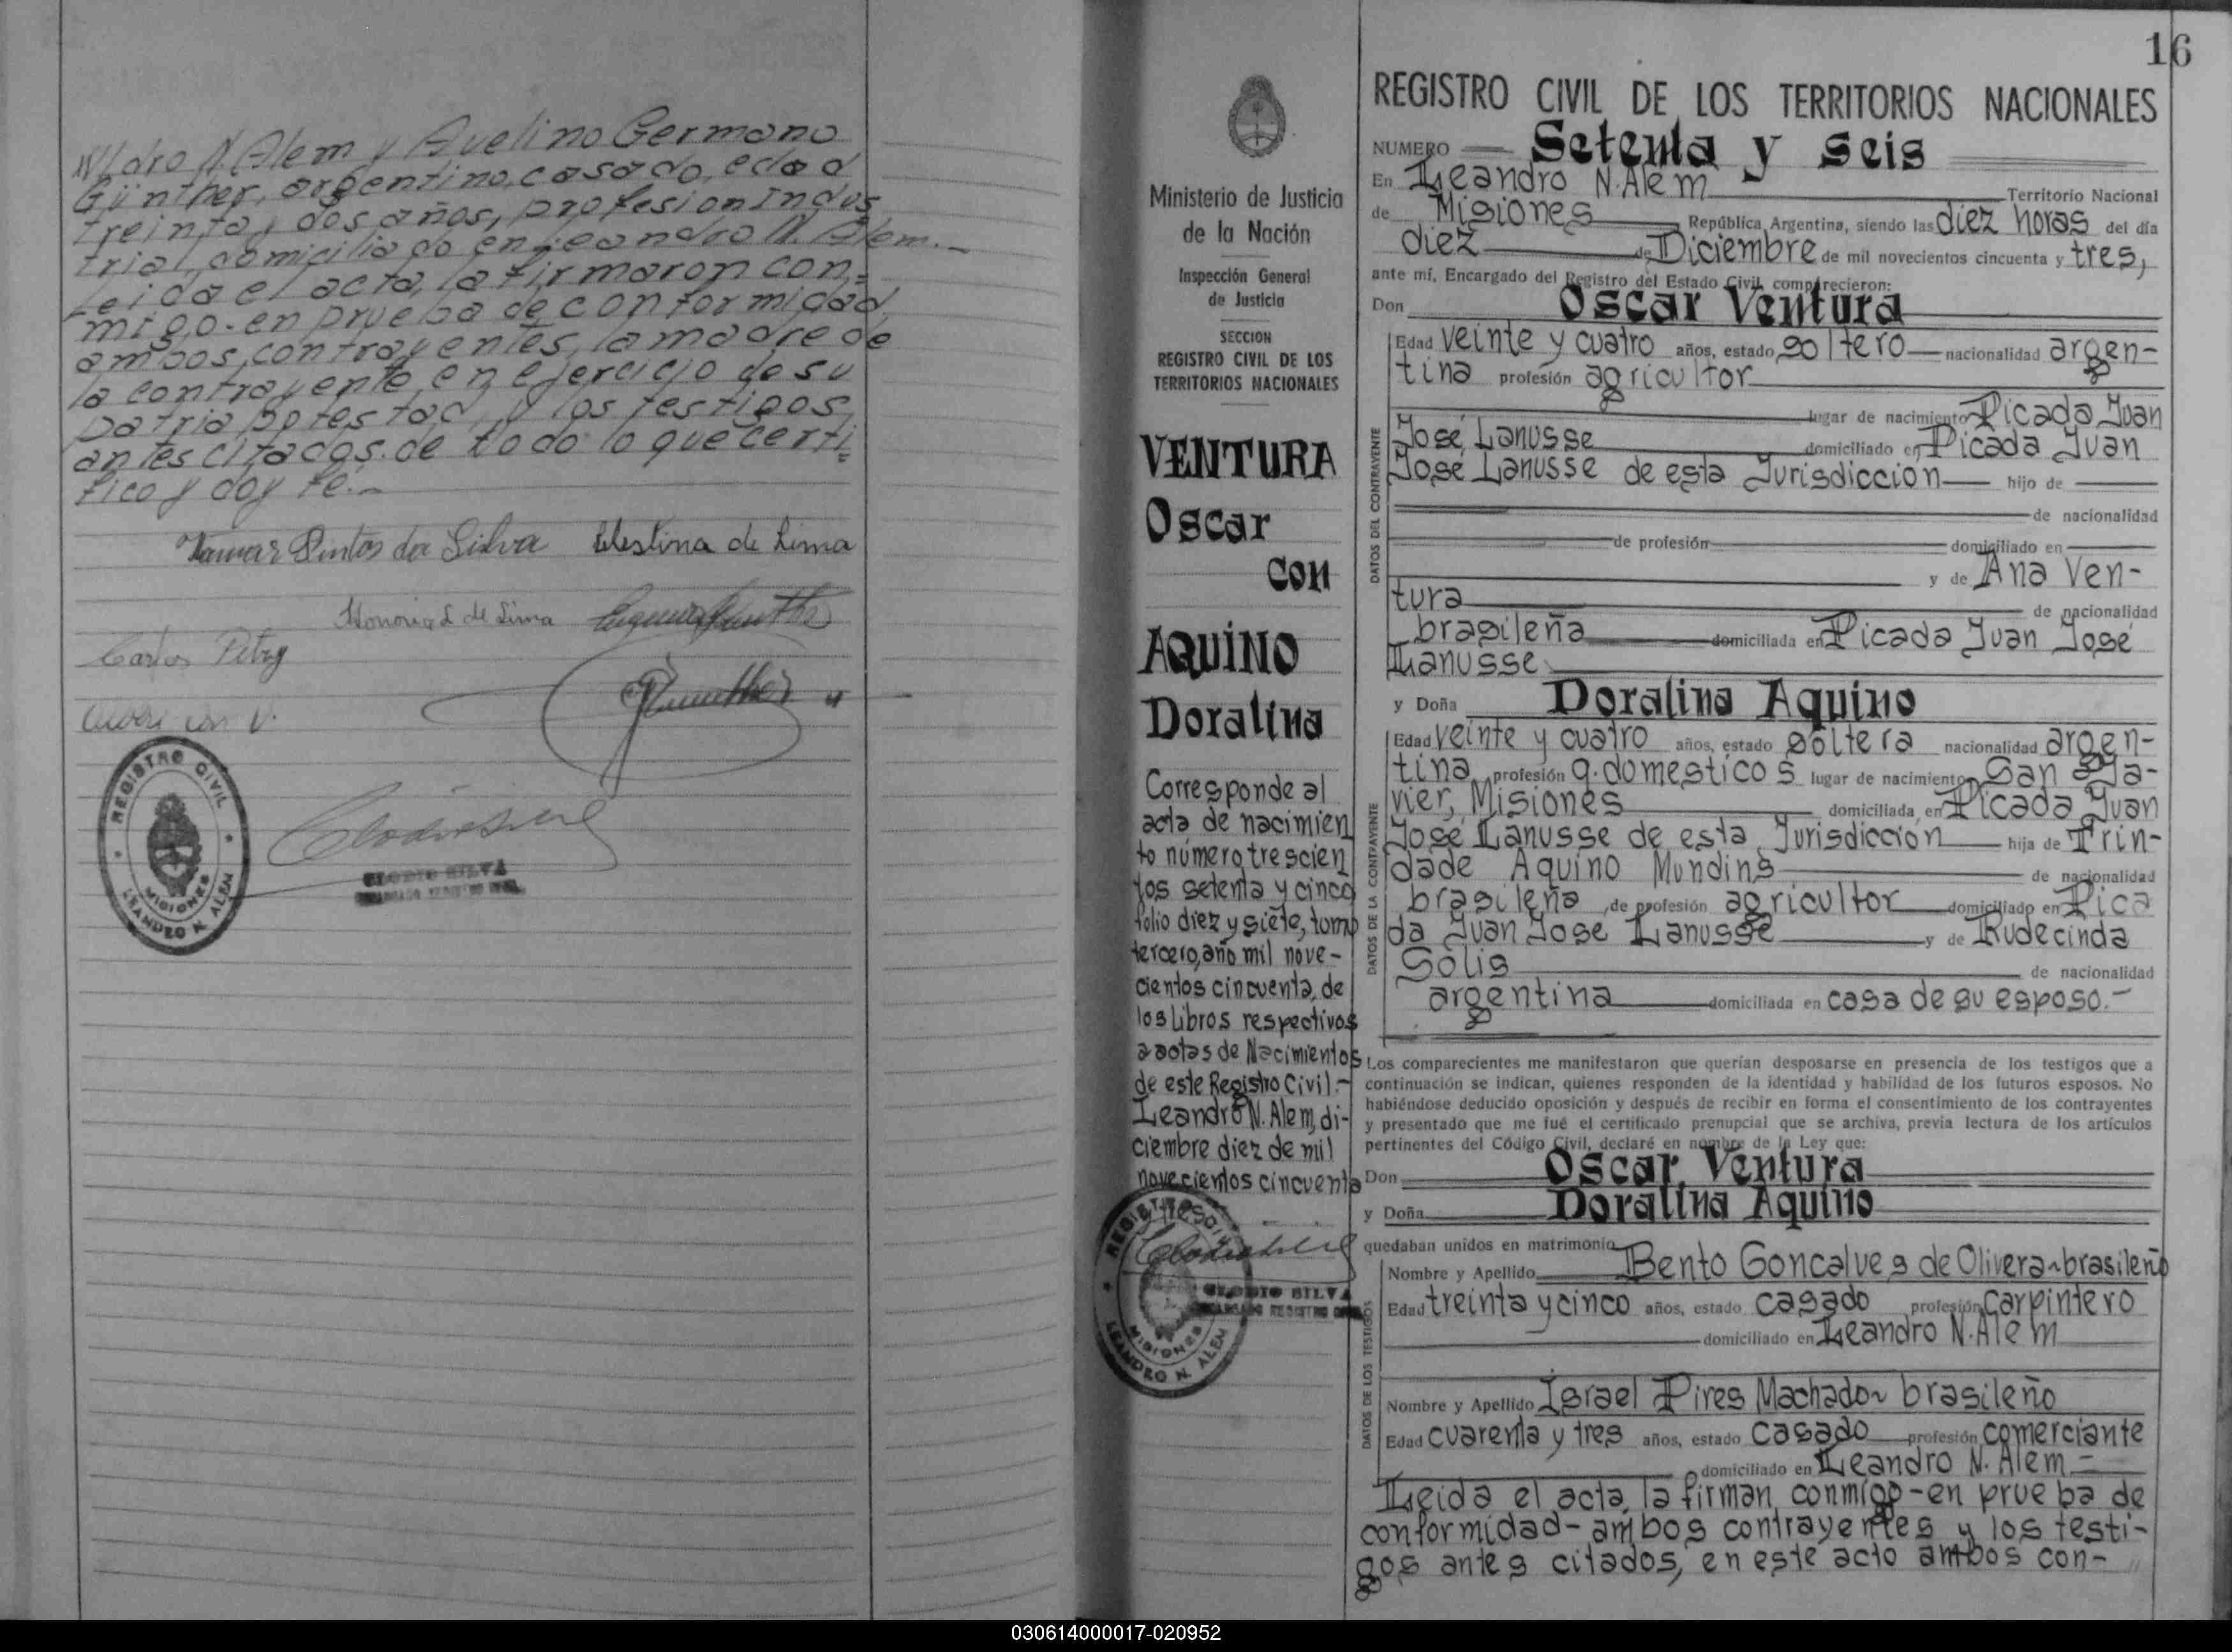 N. Alem y Avelino Germano
Günther, argentino, casado, edad
treinta y dos años, profesion Indus
trial, domiciliado en Leandro N. Alem.—
Leida el acta, la firmaron con=
migo-en prueba de conformidad,
ambos contrayentes, la madre de
la contrayente en ejercicio de su
patria potestad, y los testigos
antes citados. de todo lo que certi=
fico y doy fé.—
Pintos da Silva Celestina de Lima
Honoria L de Lima
Carlos Petry
REGISTRO CIVIL
MISIONES
LEANDRO N. ALEM
CLODIO SILVA
16
Ministerio de Justicia
de la Nación
Inspección General
de Justicia
SECCION
REGISTRO CIVIL DE LOS
TERRITORIOS NACIONALES
VENTURA
Oscar
con
AQUINO
Doralina
Corresponde al
acta de nacimien
to número trescien
tos setenta y cinco
folio diez y siete, tomo
tercero, año mil nove-
cientos cincuenta, de
los Libros respectivos
a actas de Nacimientos
de este Registro Civil.-
Leandro N. Alem, di-
ciembre diez de mil
novecientos cincuenta
y tres.-
REGISTRO CIVIL
MISIONES
LEANDRO N. ALEM
CLODIO SILVA
ENCARGADO REGISTRO CIVIL
REGISTRO CIVIL DE LOS TERRITORIOS NACIONALES
NUMERO Setenta y seis
En Leandro N. Alem Territorio Nacional
de Misiones República Argentina, siendo las diez horas del día
diez de Diciembre de mil novecientos cincuenta y tres,
ante mí, Encargado del Registro del Estado Civil, comparecieron:
Don Oscar Ventura
DATOS DEL CONTRAYENTE
Edad veinte y cuatro años, estado soltero nacionalidad argen-
tina profesión agricultor
lugar de nacimiento Picada Juan
José Lanusse domiciliado en Picada Juan
José Lanusse de esta Jurisdiccion hijo de
de nacionalidad
de profesión domiciliado en
y de Ana Ven-
tura de nacionalidad
brasileña domiciliada en Picada Juan José
Lanusse
y Doña Doralina Aquino
DATOS DE LA CONTRAYENTE
Edad veinte y cuatro años, estado soltera nacionalidad argen-
tina profesión q. domesticos lugar de nacimiento San Ja-
vier, Misiones domiciliada en Picada Juan
José Lanusse de esta Jurisdiccion hija de Trin-
dade Aquino Mundins de nacionalidad
brasileña, de profesión agricultor domiciliado en Pica
da Juan Jose Lanusse y de Rudecinda
Solis de nacionalidad
argentina domiciliada en casa de su esposo.-
Los comparecientes me manifestaron que querían desposarse en presencia de los testigos que a
continuación se indican, quienes responden de la identidad y habilidad de los futuros esposos. No
habiéndose deducido oposición y después de recibir en forma el consentimiento de los contrayentes
y presentado que me fué el certificado prenupcial que se archiva, previa lectura de los artículos
pertinentes del Código Civil, declaré en nombre de la Ley que:
Don Oscar Ventura
y Doña Doralina Aquino
quedaban unidos en matrimonio
DATOS DE LOS TESTIGOS
Nombre y Apellido Bento Goncalves de Olivera~brasileño
Edad treinta y cinco años, estado casado profesión carpintero
domiciliado en Leandro N. Alem
Nombre y Apellido Israel Pires Machado~ brasileño
Edad cuarenta y tres años, estado casado profesión comerciante
domiciliado en Leandro N. Alem-
Leida el acta, la firman conmigo-en prueba de
conformidad-ambos contrayentes y los testi-
gos antes citados, en este acto ambos con-
030614000017-020952